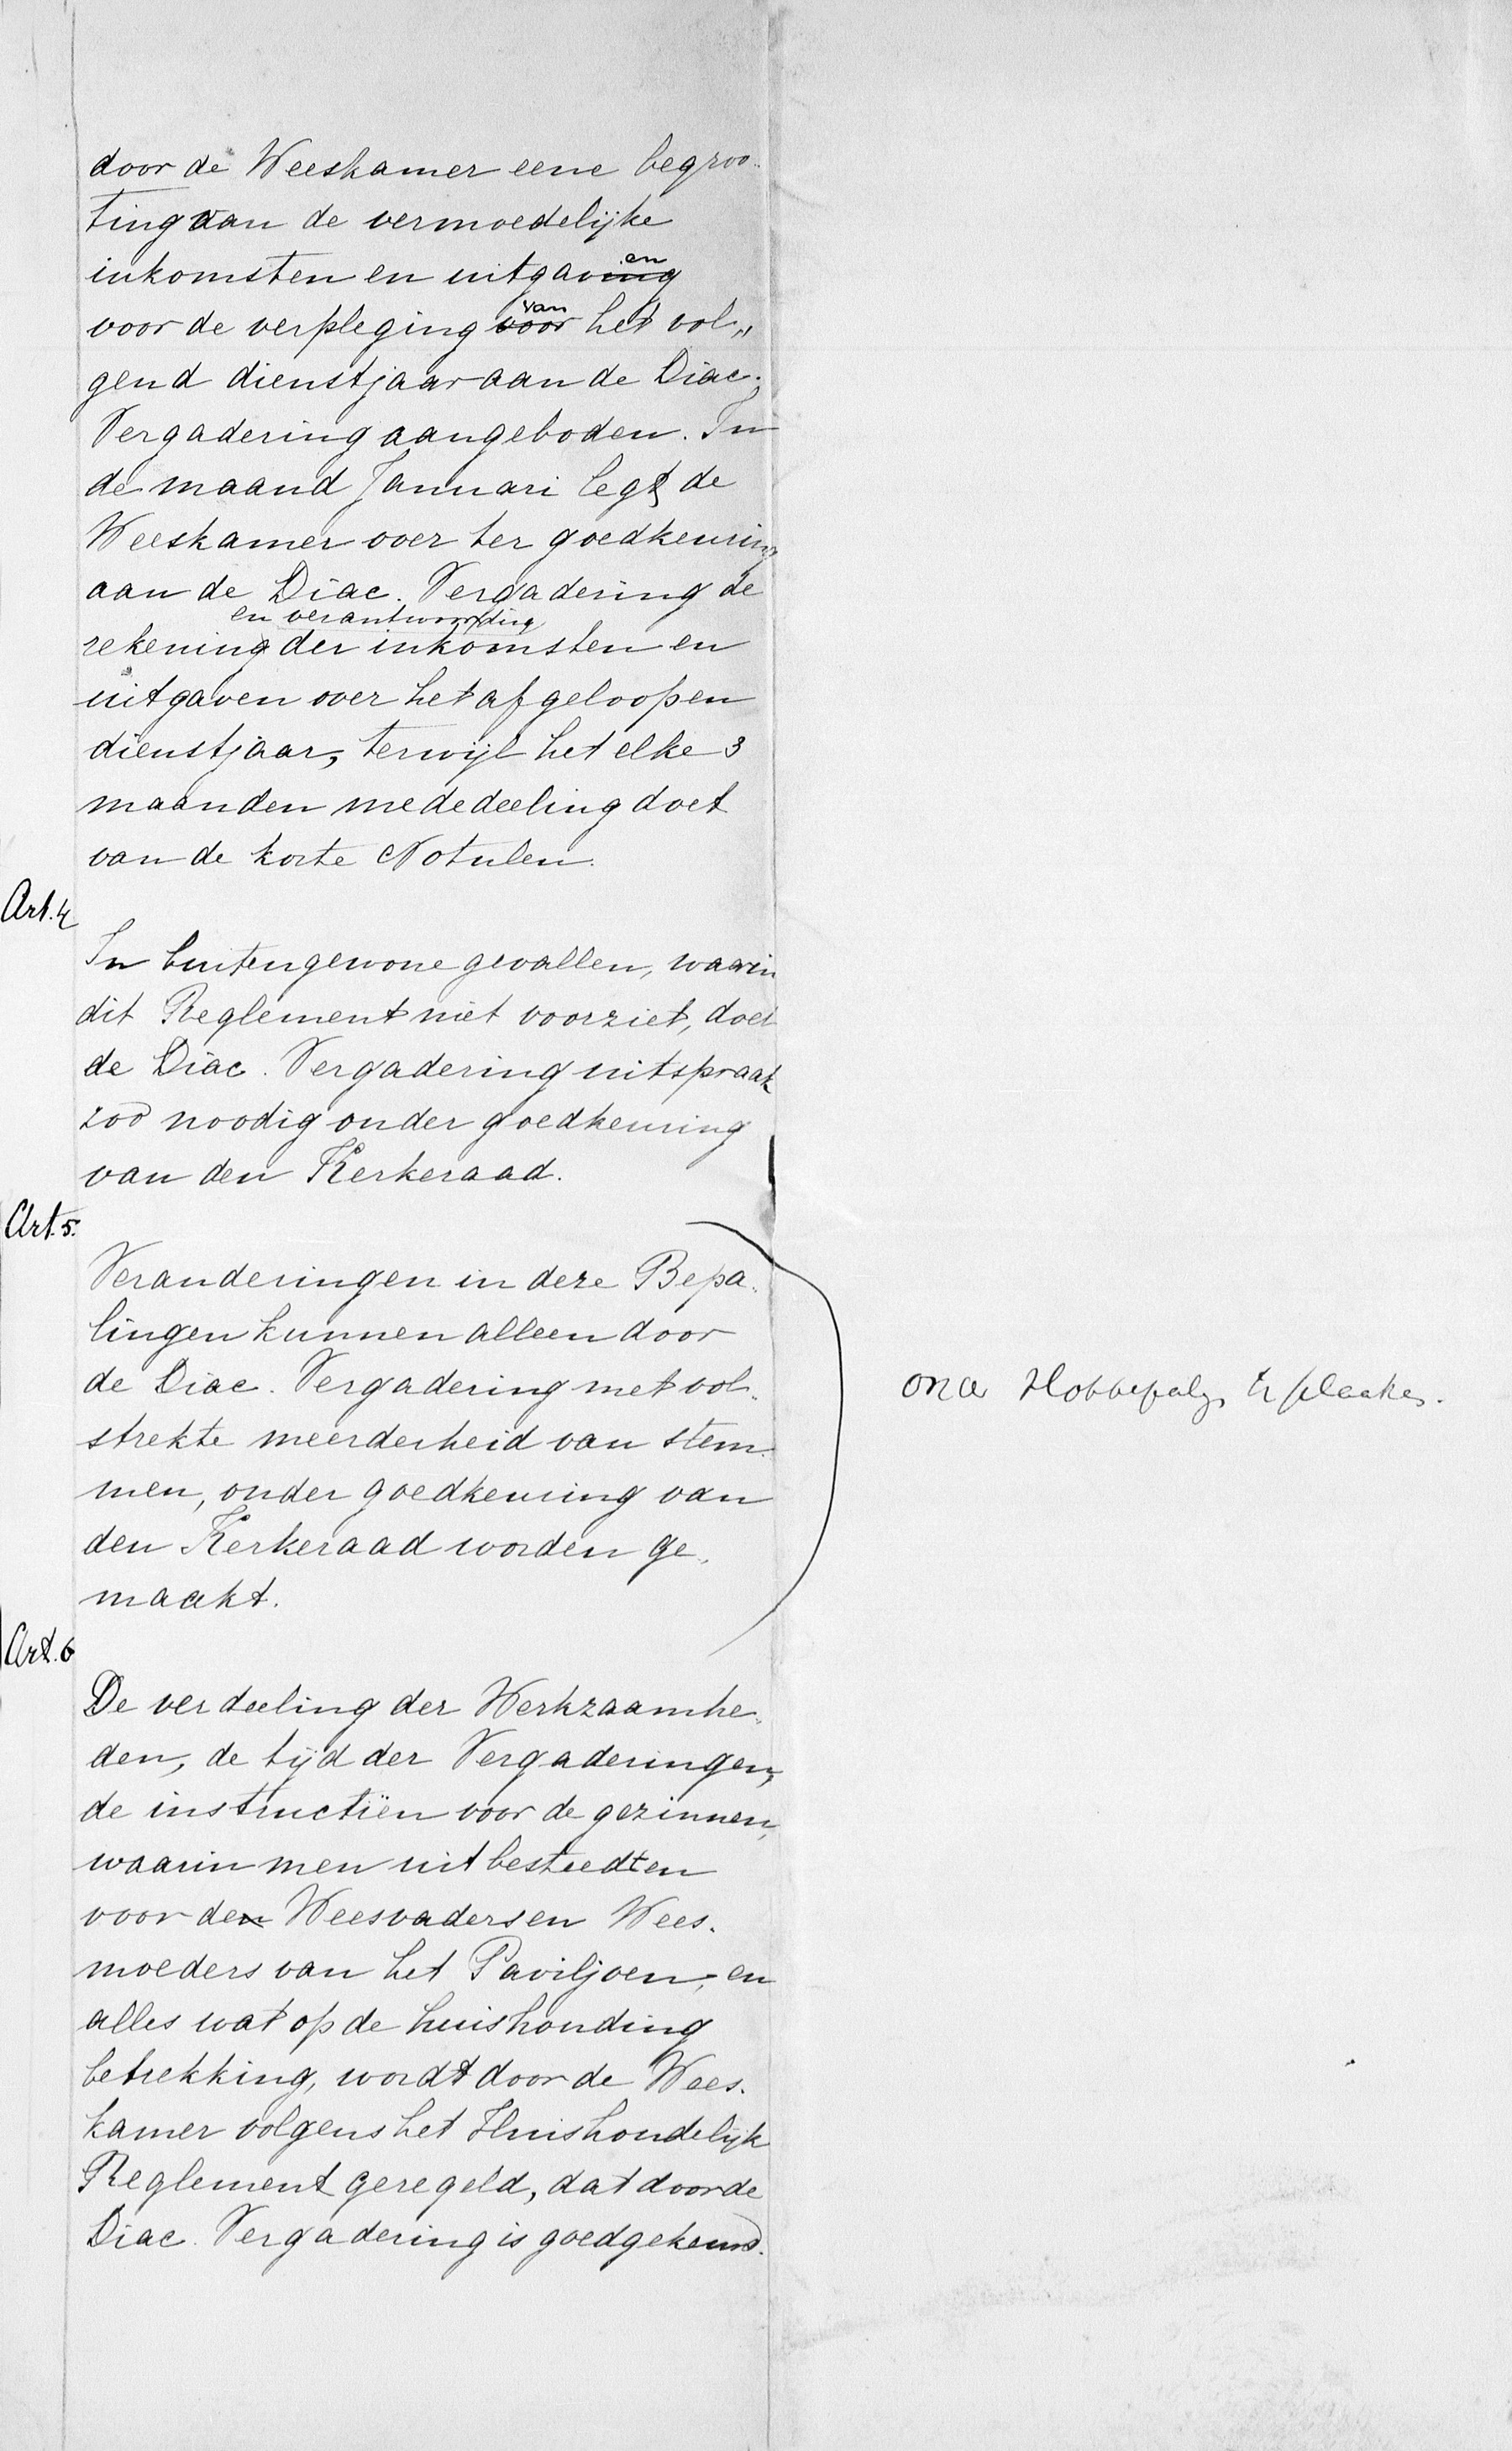 door de Weeskamer eene begroo-
ting van de vermoedelijke
inkomsten en uitgaven
voor de verpleging van het vol„
gend dienstjaar aan de Diac.
Vergadering aangeboden. In
de maand Januari legt de
Weeskamer over ter goedkeuring
aan de Diac. Vergadering de
rekening en verantwoording der inkomsten en
uitgaven over het afgeloopen
dienstjaar, terwijl het elke 3
maanden mededeeling doet
van de korte Notulen.
Art. 4
In buitengewone gevallen, waarin
dit Reglement niet voorziet, doet
de Diac. Vergadering uitspraak
zoo noodig onder goedkeuring
van den Kerkeraad.
Art. 5.
Veranderingen in deze Bepa-
lingen kunnen alleen door
de Diac. Vergadering met vol-
strekte meerderheid van stem-
men, onder goedkeuring van
den Kerkeraad worden ge-
maakt.
Art. 6
De verdeeling der Werkzaamhe-
den, de tijd der Vergaderingen,
de instructiën voor de gezinnen,
waarin men uitbesteedt en
voor de Weesvaders en Wees-
moeders van het Paviljoen, en
alles wat op de huishouding
betrekking, wordt door de Wees-
kamer volgens het Huishoudelijk
Reglement geregeld, dat door de
Diac. Vergadering is goedgekeurd.